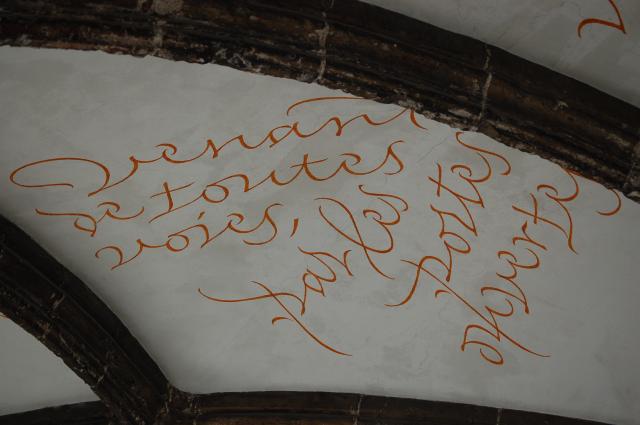 Venant
de toutes
voies,
par les
portes
ouvertes